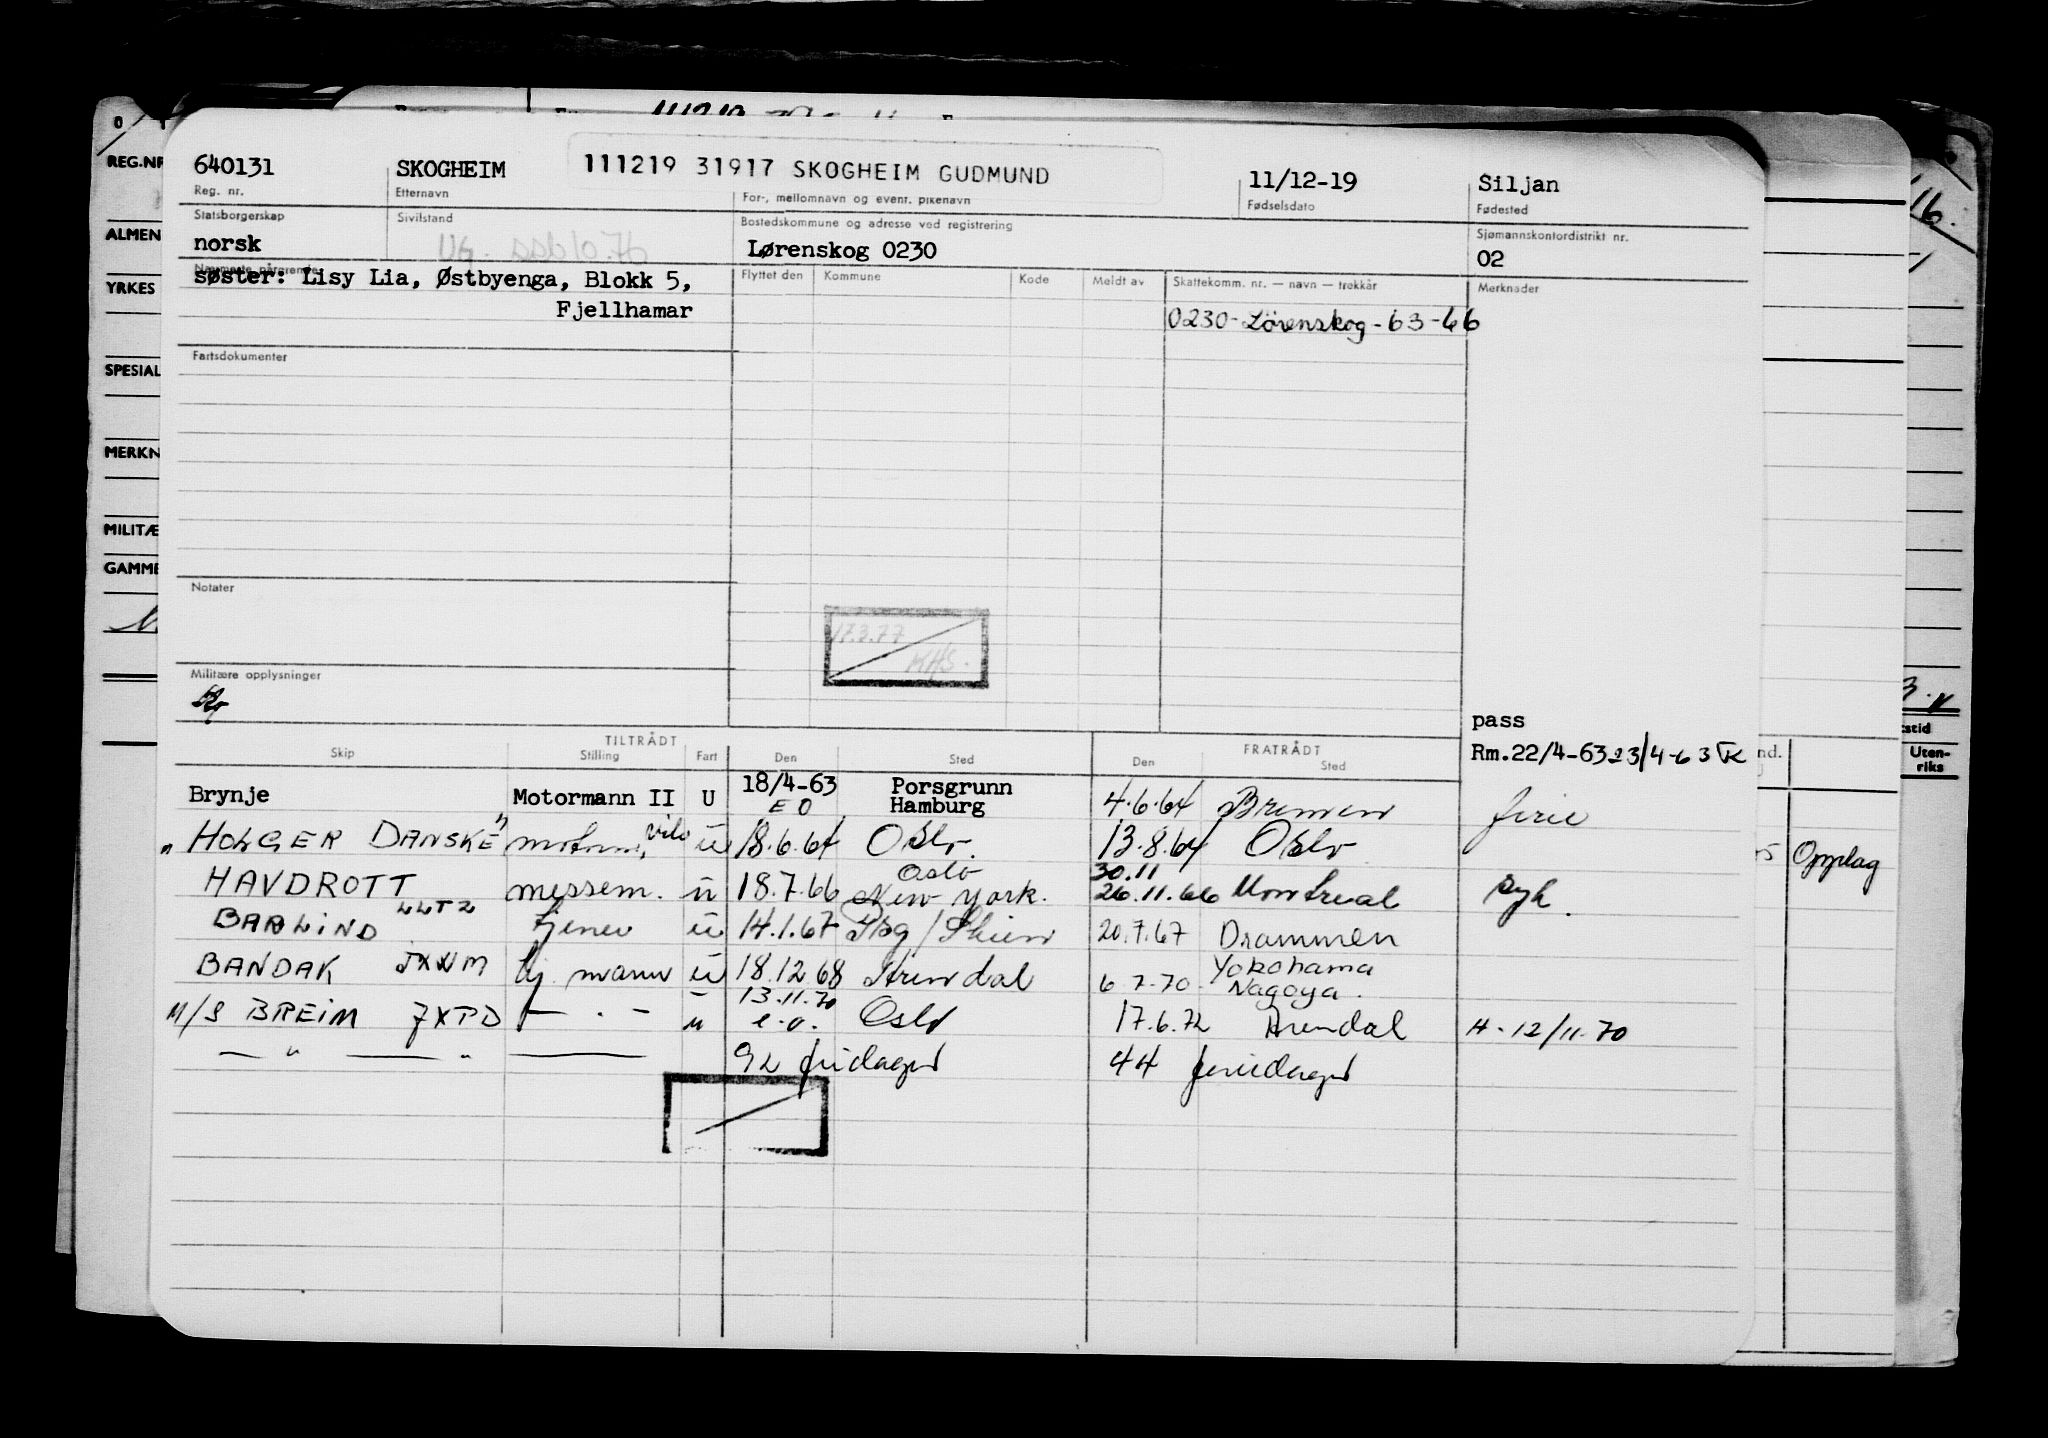 0
REG.NR
640131
SKOGHEIM
111219 31917 SKOGHEIM GUDMUND
11/12-19
Siljan
Reg. nr.
Etternavn
For-, mellomnavn og event. pikenavn
Fødselsdato
Fødested
Statsborgerskap
Sivilstand
Bostedskommune og adresse ved registrering
Sjømannskontordistrikt nr.
ALMEN
norsk
UG.
Lørenskog 0230
02
Nærmeste pårørende
søster: Lisy Lia, Østbyenga, Blokk 5,
Fjellhamar
Flyttet den
Kommune
Kode
Meldt av
Skattekomm. nr. — navn — trekkår
Merknader
YRKES
0230-Lörenskog-63-66
Fartsdokumenter
SPESIAL
MERKN
MILITÆ
GAMME
Notater
17.3.77
KHS.
Militære opplysninger
pass
Rm.22/4-63 23/4-63
TILTRÅDT
FRATRÅDT
Skip
Stilling
Fart
Den
Sted
Den
Sted
stid
nd.
Uten-
riks
Brynje Motormann II U 18/4-63 EO Porsgrunn Hamburg 4.6.64 Bremen ferie
"HOLGER DANSKE" motorm. vik ü 18.6.64 Oslo. 13.8.64 Oslo
Opplag
HAVDROTT LLTZ messem. ü 18.7.66 Oslo New York. 30.11 26.11.66 Montreal syk.
BARLIND tjener ü 14.1.67 Pbg/Skien 20.7.67 Drammen
BANDAK JXWM tj. mann ü 18.12 68 Arendal 6 7-70 Yokohama Nagoya.
M/S BREIM JXPD — . — u 13.11.70 e.o. Oslo 17.6.72 Arendal H-12/11.70
— " — " — 92 fridager 44 feriedager